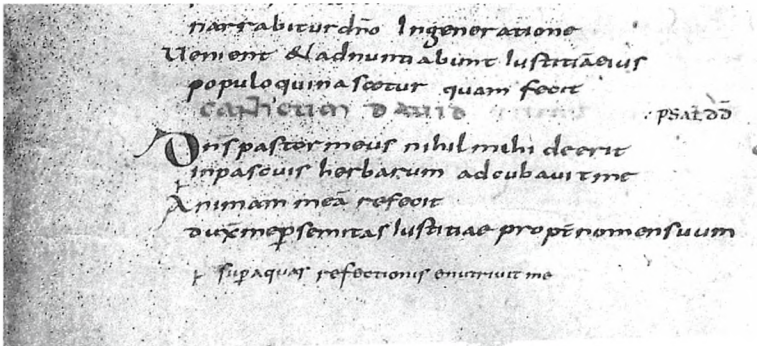 narrabitur dño Ingeneratione
Uenient & adnuntiabunt Iustitiā eius
populo quinascetur quam fecit
canticum DAUID ·PSAL DD
Dns pastor meus nihil mihi deerit
inpascuis herbarum adcubauit me
Animam meā refecit
duxit me p semitas Iustitiae propt nomen suum
sup aquas refectionis enutriuit me